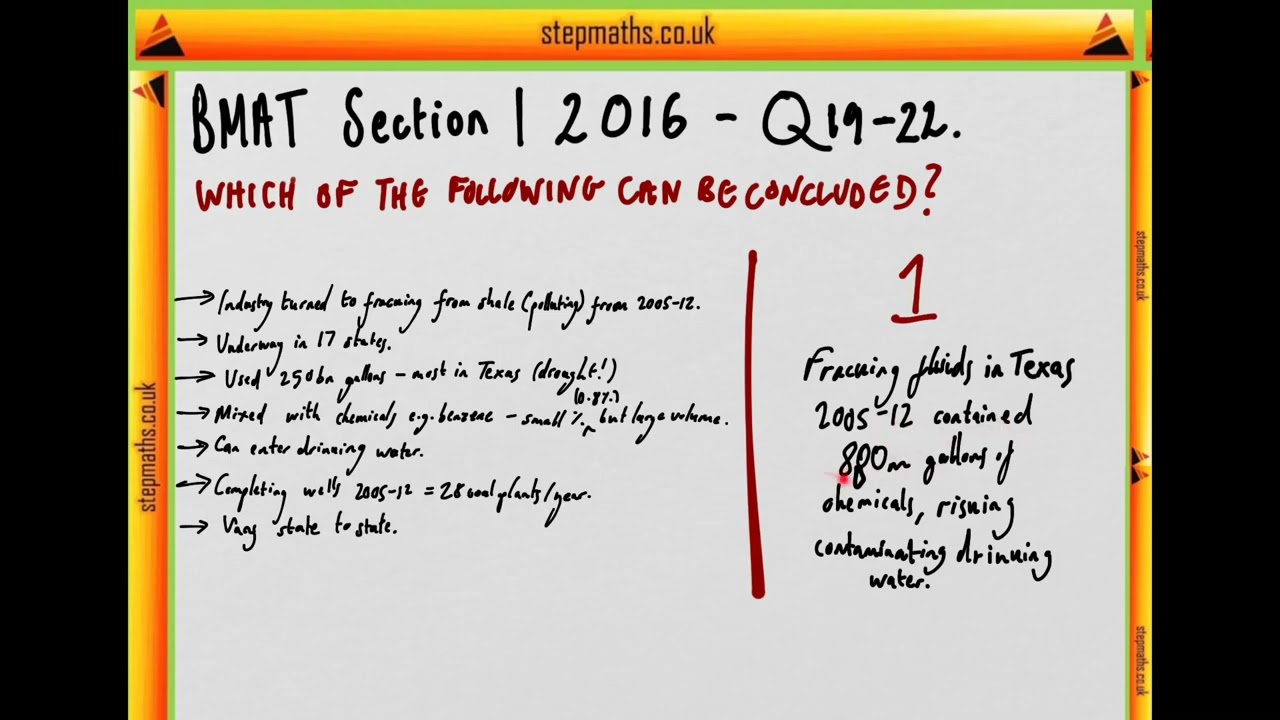 stepmaths.co.uk
BMAT Section 1 2016 - Q19-22.
WHICH OF THE FOLLOWING CAN BE CONCLUDED?
→ Industry turned to fracking from shale (polluting) from 2005-12.
→ Underway in 17 states.
→ Used 250bn gallons - most in Texas (drought!)
(0.8%)
→ Mixed with chemicals e.g. benzene - small % but large volume.
→ Can enter drinking water.
→ Completing wells 2005-12 = 28 coal plants/year.
→ Vary state to state.
1
Fracking fluids in Texas
2005-12 contained
880m gallons of
chemicals, risking
contaminating drinking
water.
stepmaths.co.uk
stepmaths.co.uk
stepmaths.co.uk